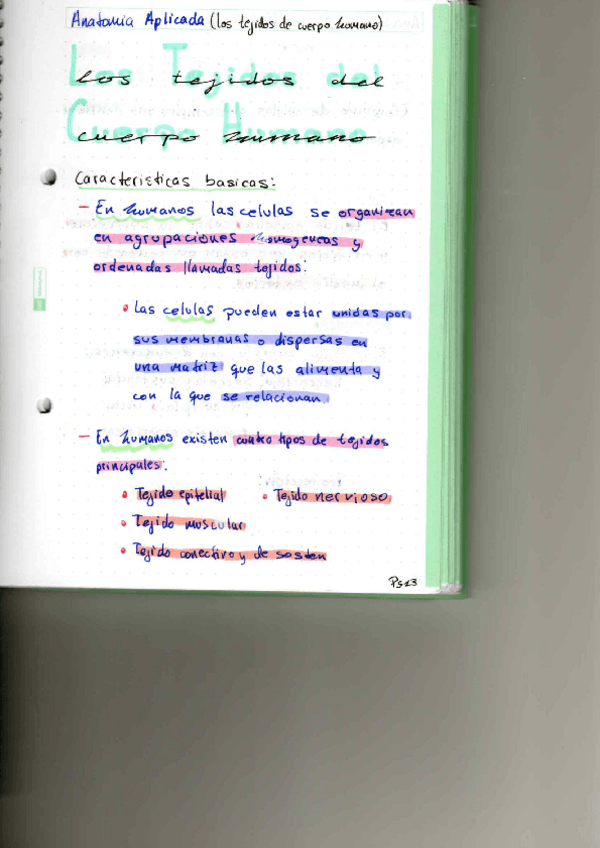 Anatomia Aplicada (los tejidos de cuerpo humano)
Los Tejidos del
Cuerpo Humano
los tejidos del
cuerpo humano
Caracteristicas basicas:
- En humanos las celulas se organizan
en agrupaciones homogeneas y
ordenadas llamadas tejidos.
• Las celulas pueden estar unidas por
sus membranas o dispersas en
una matriz que las alimenta y
con la que se relacionan.
- En humanos existen cuatro tipos de tejidos
principales:
• Tejido epitelial • Tejido nervioso
• Tejido muscular
• Tejido conectivo y de sosten